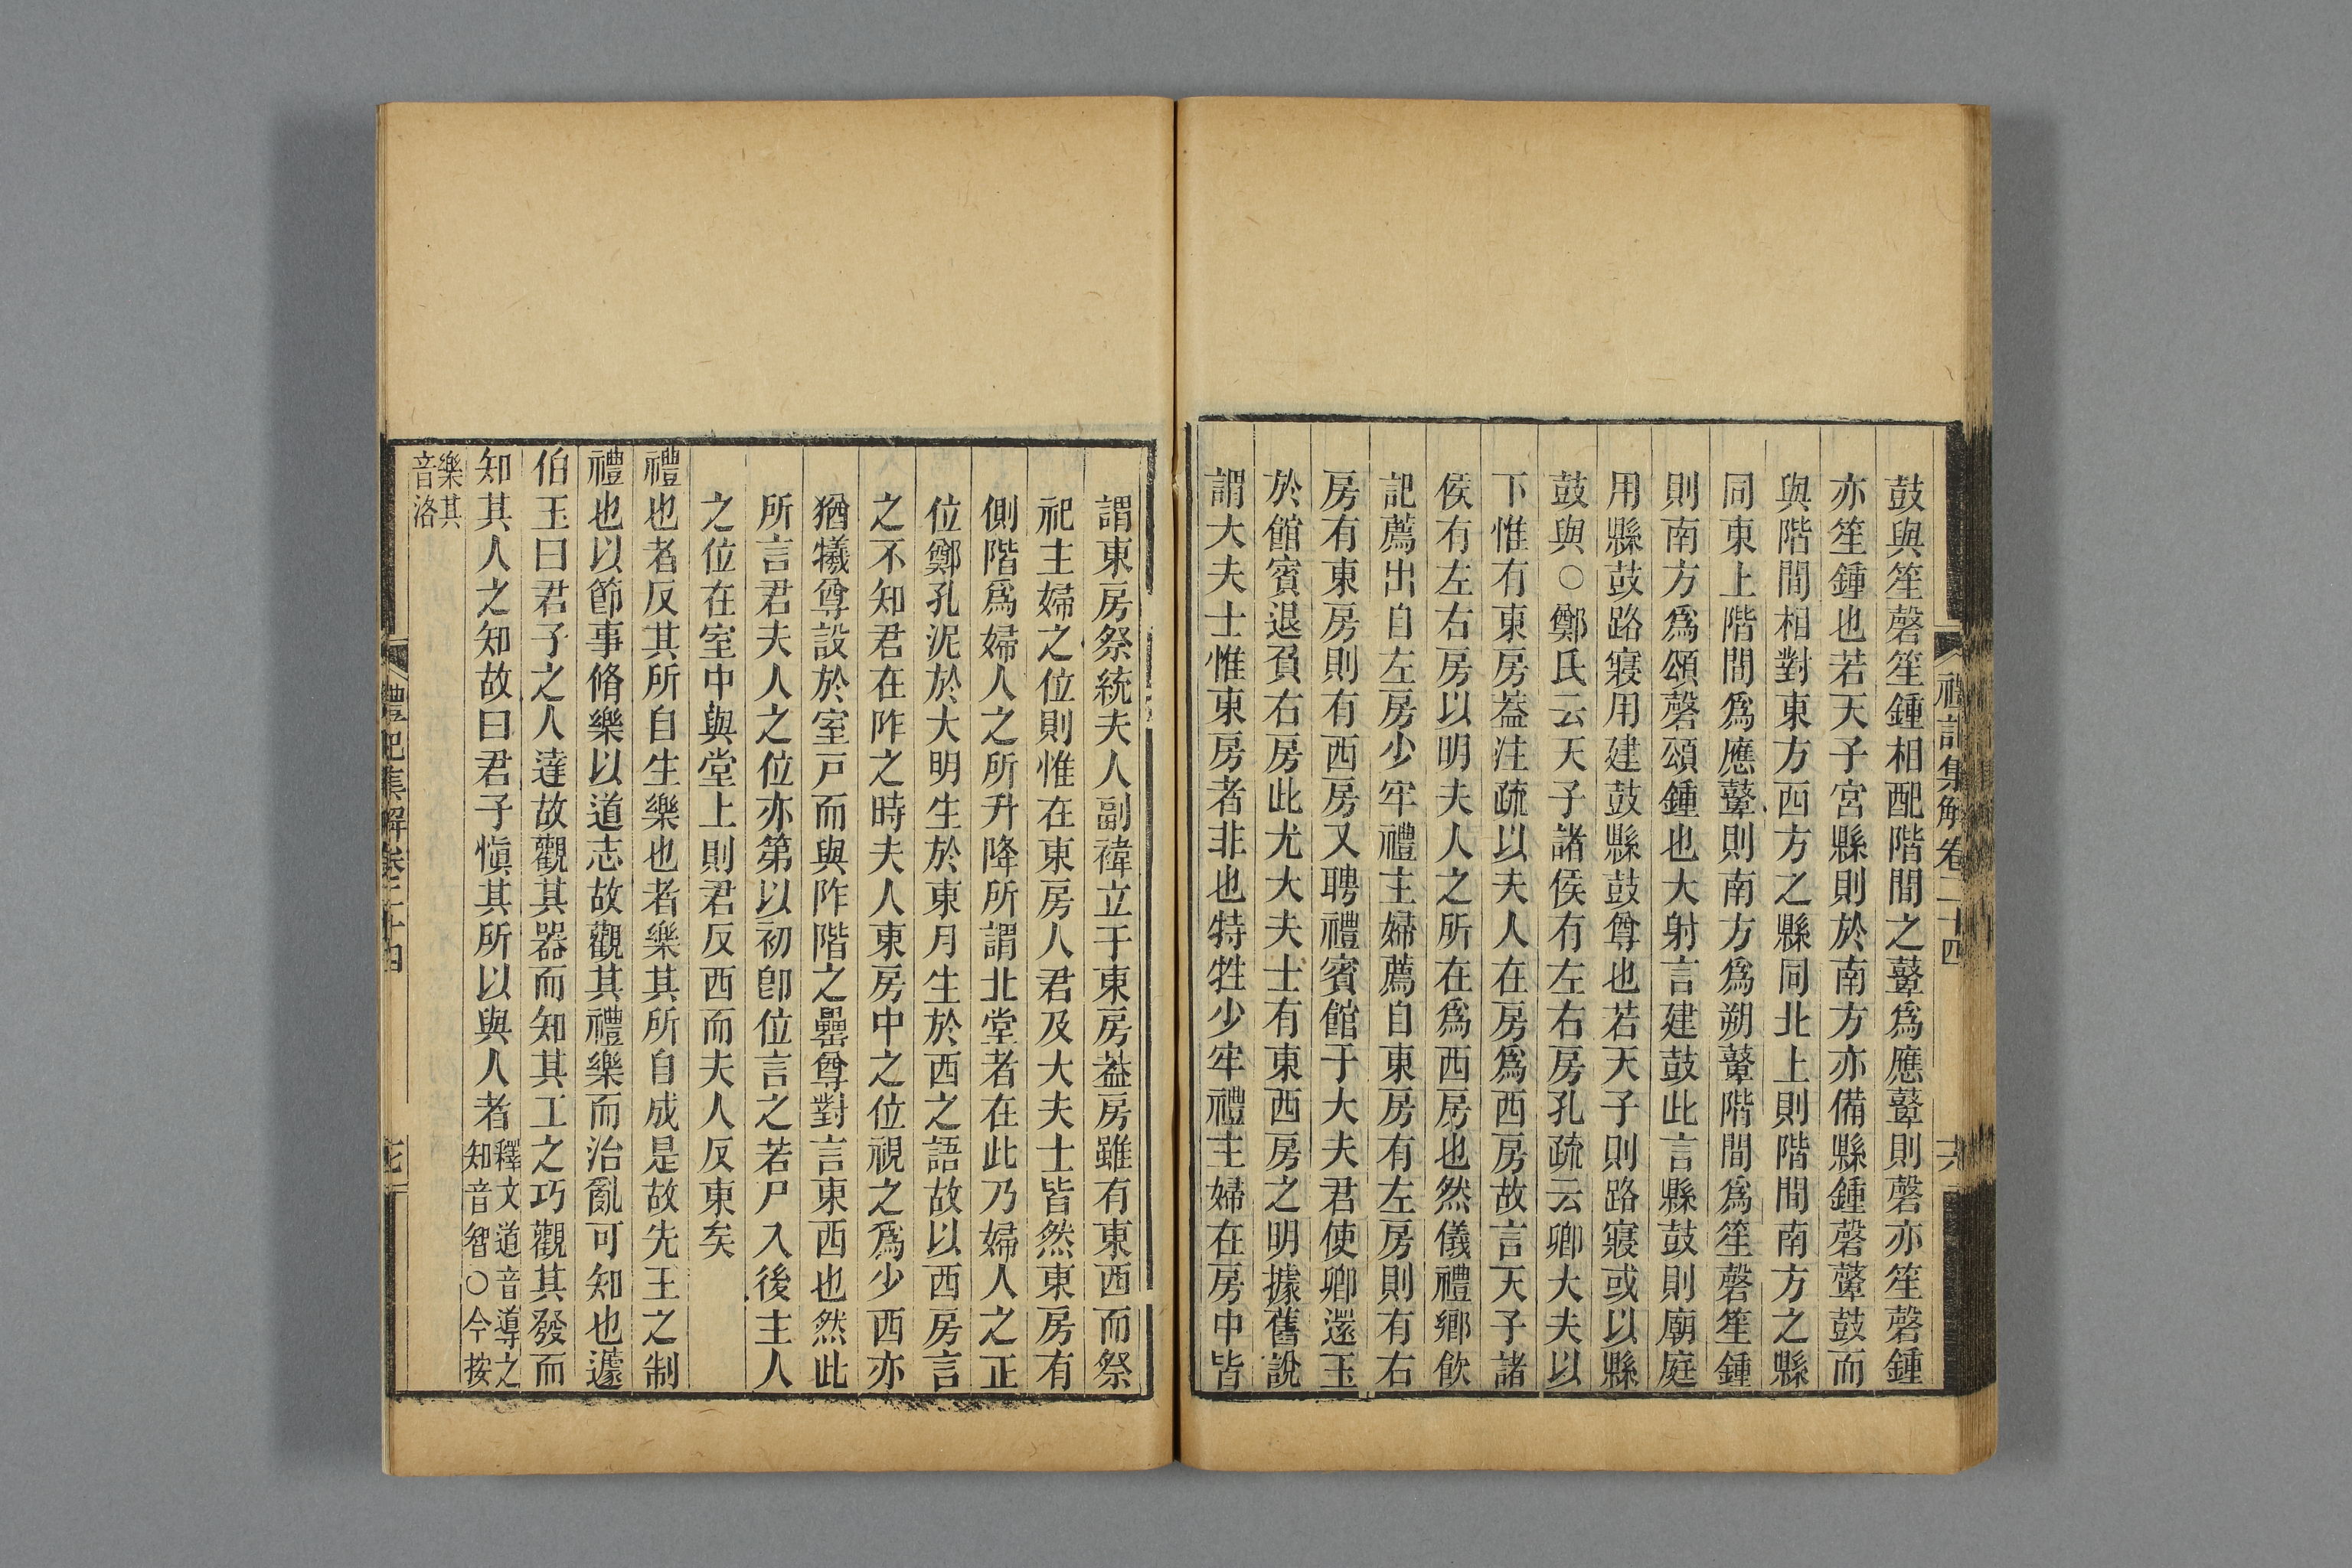 禮記集解卷二十四
六
鼓與笙磬笙鍾相配階間之鼙爲應鼙則磬亦笙磬鍾
亦笙鍾也若天子宮縣則於南方亦備縣鍾磬鼙鼓而
與階間相對東方西方之縣同北上則階間南方之縣
同東上階間爲應鼙則南方爲朔鼙階間爲笙磬笙鍾
則南方爲頌磬頌鍾也大射言建鼓此言縣鼓則廟庭
用縣鼓路寢用建鼓縣鼓尊也若天子則路寢或以縣
鼓與○鄭氏云天子諸侯有左右房孔疏云卿大夫以
下惟有東房葢注疏以夫人在房爲西房故言天子諸
侯有左右房以明夫人之所在爲西房也然儀禮鄉飲
記薦出自左房少牢禮主婦薦自東房有左房則有右
房有東房則有西房又聘禮賓館于大夫君使卿還玉
於館賓退負右房此尤大夫士有東西房之明據舊說
謂大夫士惟東房者非也特牲少牢禮主婦在房中皆
謂東房祭統夫人副褘立于東房葢房雖有東西而祭
祀主婦之位則惟在東房人君及大夫士皆然東房有
側階爲婦人之所升降所謂北堂者在此乃婦人之正
位鄭孔泥於大明生於東月生於西之語故以西房言
之不知君在阼之時夫人東房中之位視之爲少西亦
猶犧尊設於室戸而與阼階之罍尊對言東西也然此
所言君夫人之位亦第以初卽位言之若尸入後主人
之位在室中與堂上則君反西而夫人反東矣
禮也者反其所自生樂也者樂其所自成是故先王之制
禮也以節事脩樂以道志故觀其禮樂而治亂可知也蘧
伯玉曰君子之人達故觀其器而知其工之巧觀其發而
知其人之知故曰君子愼其所以與人者釋文道音導之
知音智○今按
樂其
音洛
禮記集解卷二十四